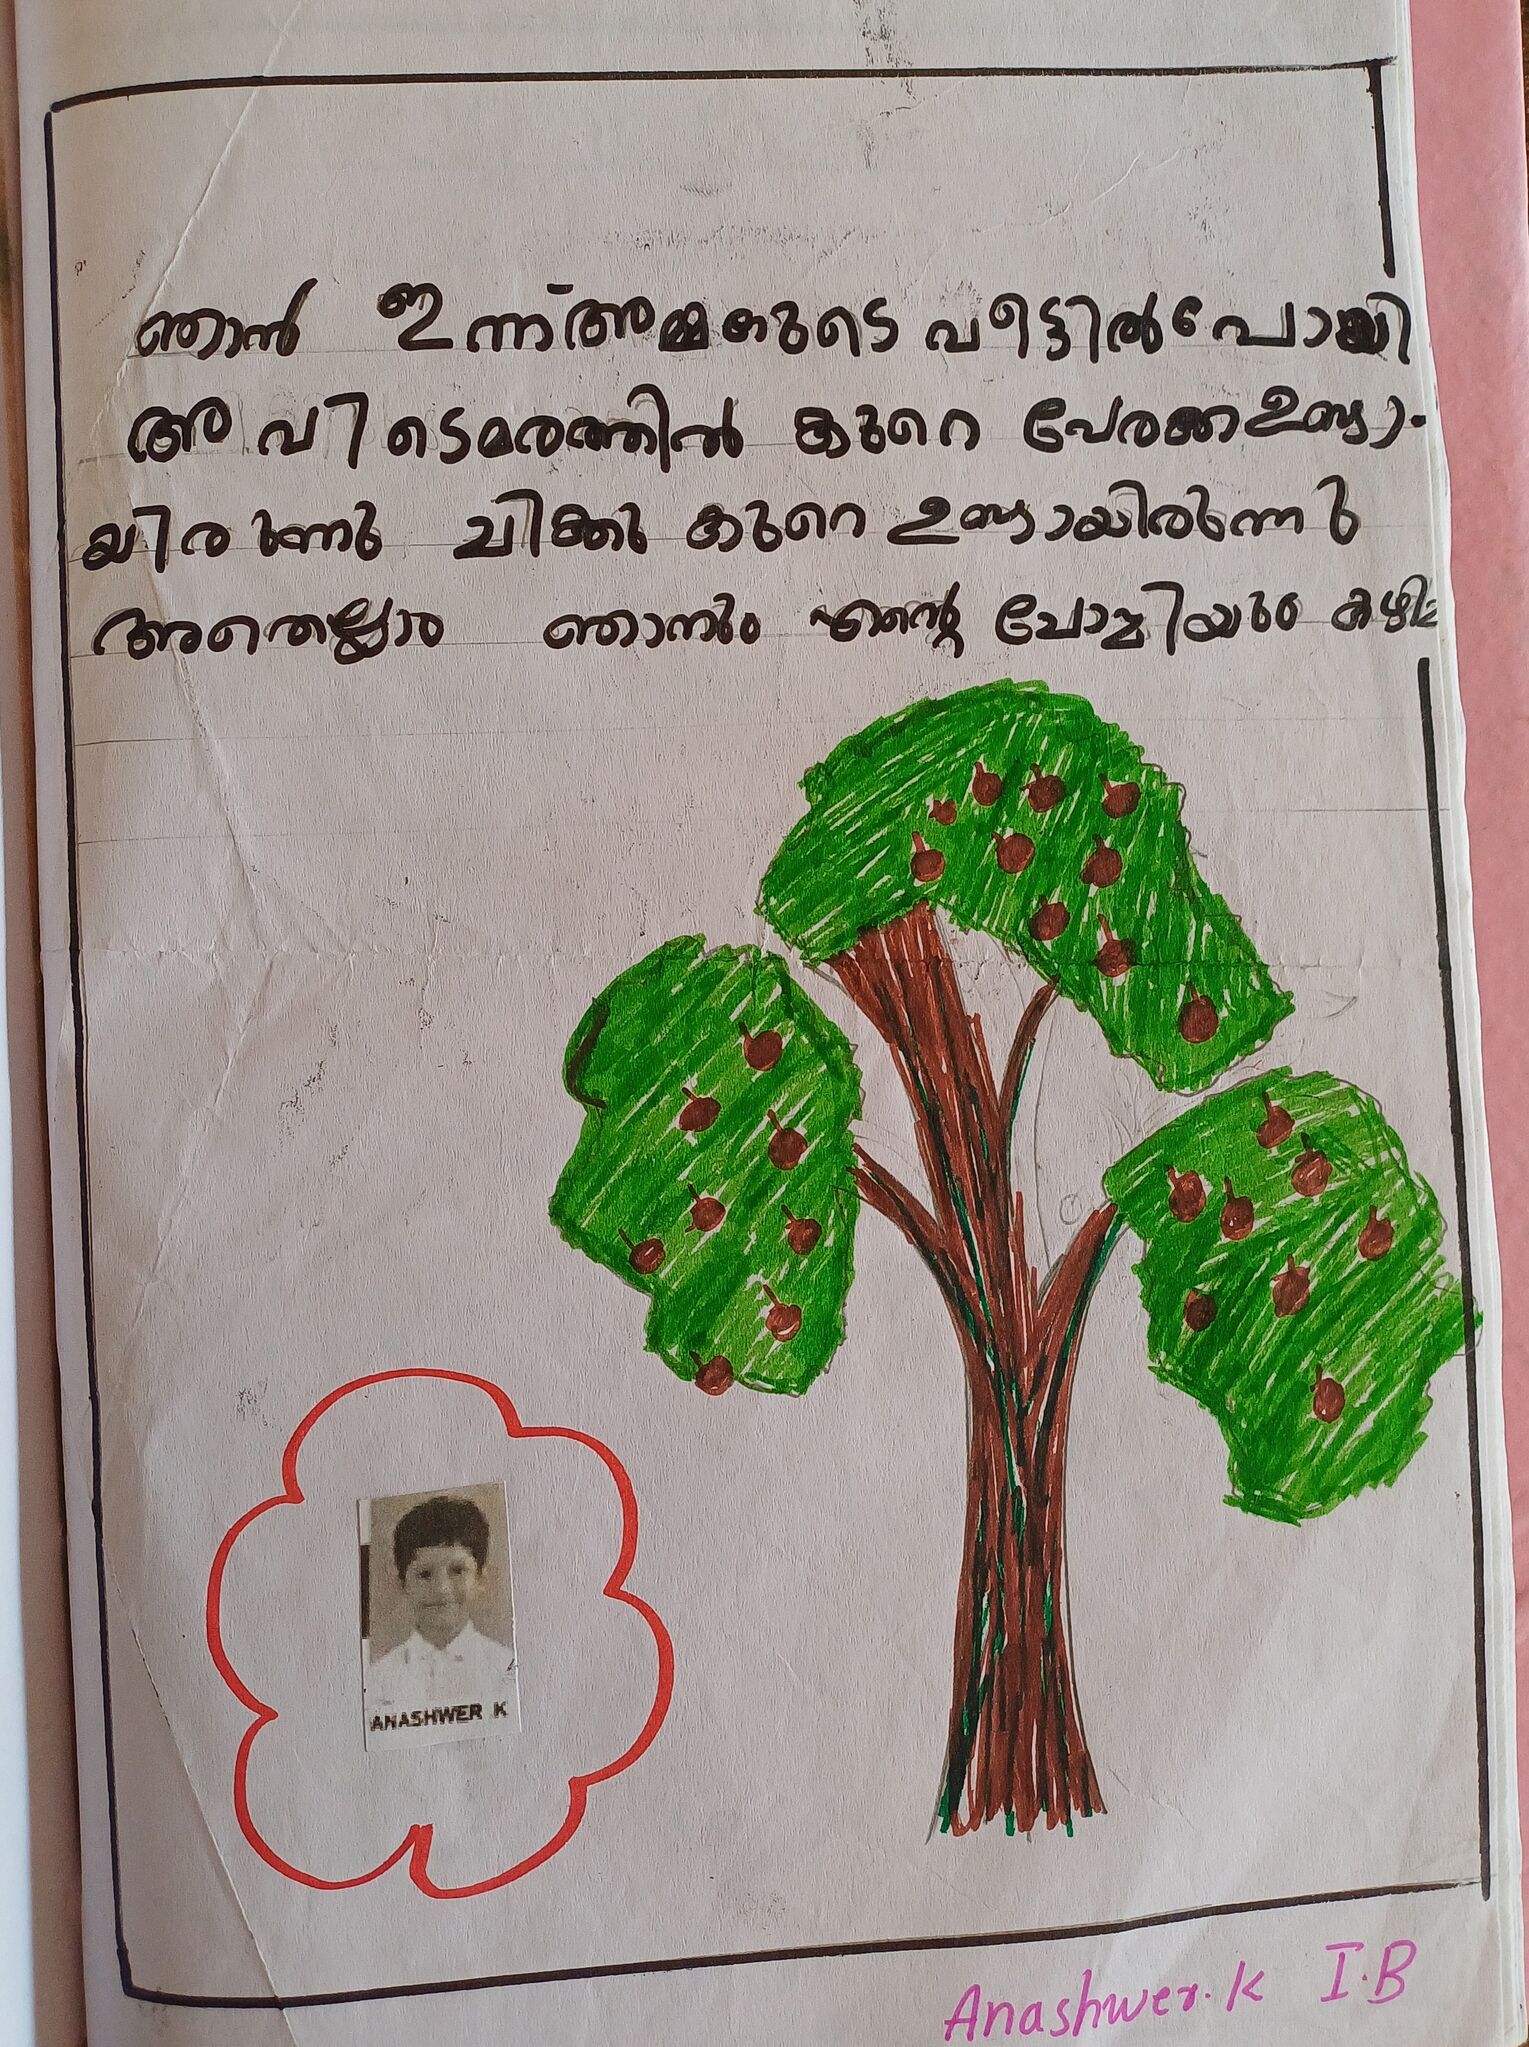 ഞാൻ ഇന്ന് അമ്മയുടെ വീട്ടിൽ പോയി
അവിടെ മരത്തിൽ കുറെ പേരക്ക ഉണ്ടാ.
യിരുന്നു ചിക്കു കുറെ ഉണ്ടായിരുന്നു
അതെല്ലാം ഞാനും എന്റെ പോറ്റിയും
ANASHWER K
Anashwer.K I.B